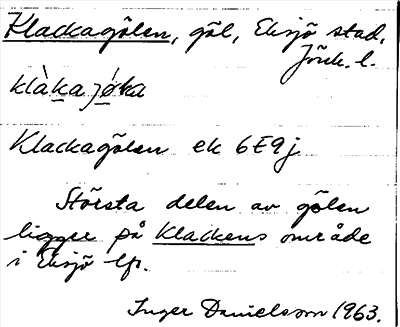 Klackagölen, göl, Eksjö stad,
Jönk. l.
klàkajø̀ka
Klackagölen ek 6E9j
Största delen av gölen
ligger på Klackens område
i Eksjö lfs.
Inger Danielsson 1963.